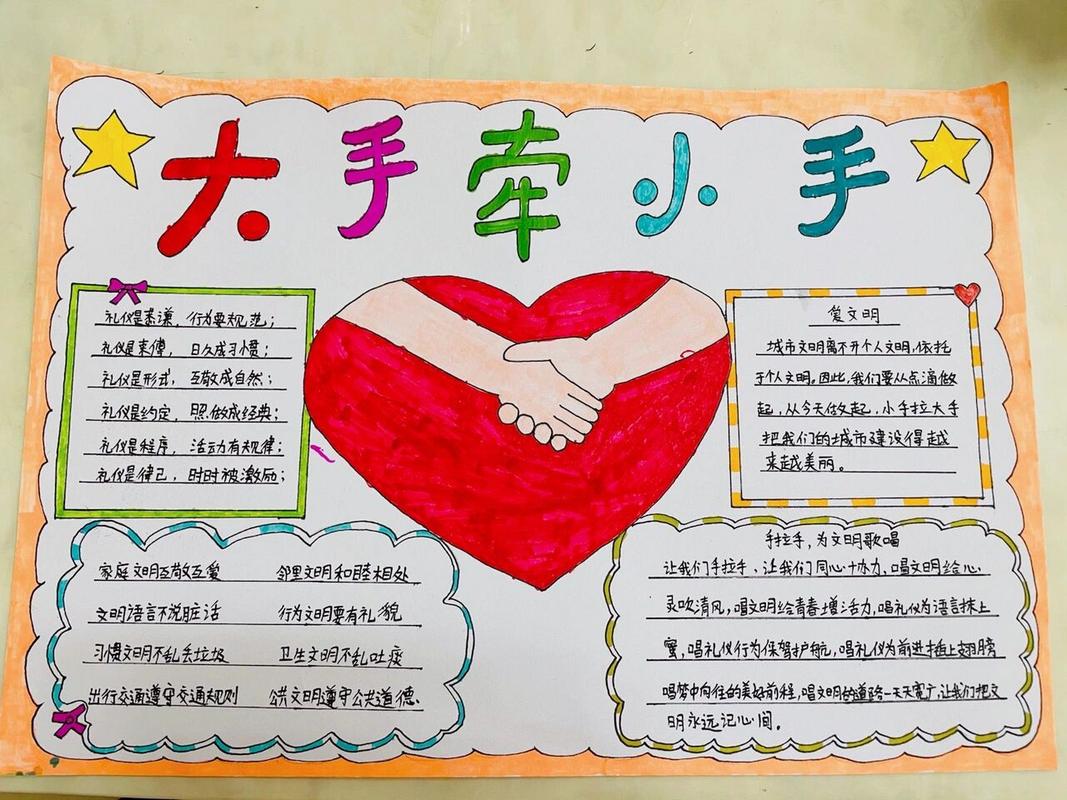 大手牵小手
礼仪是恭谦，行为要规范；
礼仪是素傳，日久成习惯；
礼仪是形式，互敬成自然；
礼仪是约定，照做成经典；
礼仪是程序，活动有规律；
礼仪是律己，时时被激励；
爱文明
城市文明离不开个人文明，依托
于个人文明。因此，我们要从点滴做
起，从今天做起，小手拉大手
把我们的城市建设得越
来越美丽。
家庭文明互敬互爱 邻里文明和睦相处
文明语言不说脏话 行为文明要有礼貌
习惯文明不乱丢垃圾 卫生文明不乱吐痰
出行交通遵守交通规则 公共文明遵守公共道德.
手拉手，为文明歌唱
让我们手拉手、让我们同心协力，唱文明给心.
灵吹清风，唱文明给青春增活力，唱礼仪为语言抹上
蜜，唱礼仪行为保驾护航，唱礼仪为前进插上翅膀
唱梦中向往的美好前程，唱文明的道路一天天宽广，让我们把文
明永远记心间。